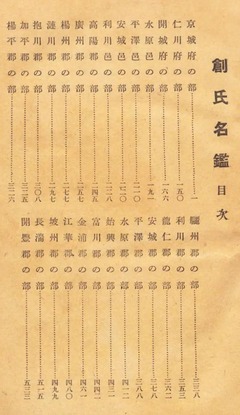 創氏名鑑 目次
京城府の部……一
仁川府の部……一五〇
開城府の部……一六六
水原邑の部……一九一
平澤邑の部……
安城邑の部……二二〇
利川邑の部……
高陽郡の部……二四五
廣州郡の部……二五七
楊州郡の部……二七七
漣川郡の部……二九七
抱川郡の部……三〇八
加平郡の部……
楊平郡の部……三二六
驪州郡の部……三三八
利川郡の部……三五三
龍仁郡の部……三六二
安城郡の部……三七八
平澤郡の部……三八八
水原郡の部……四一二
始興郡の部……四三一
富川郡の部……四四二
金浦郡の部……四六一
江華郡の部……四八〇
坡州郡の部……
長湍郡の部……五一五
開豊郡の部……五三三